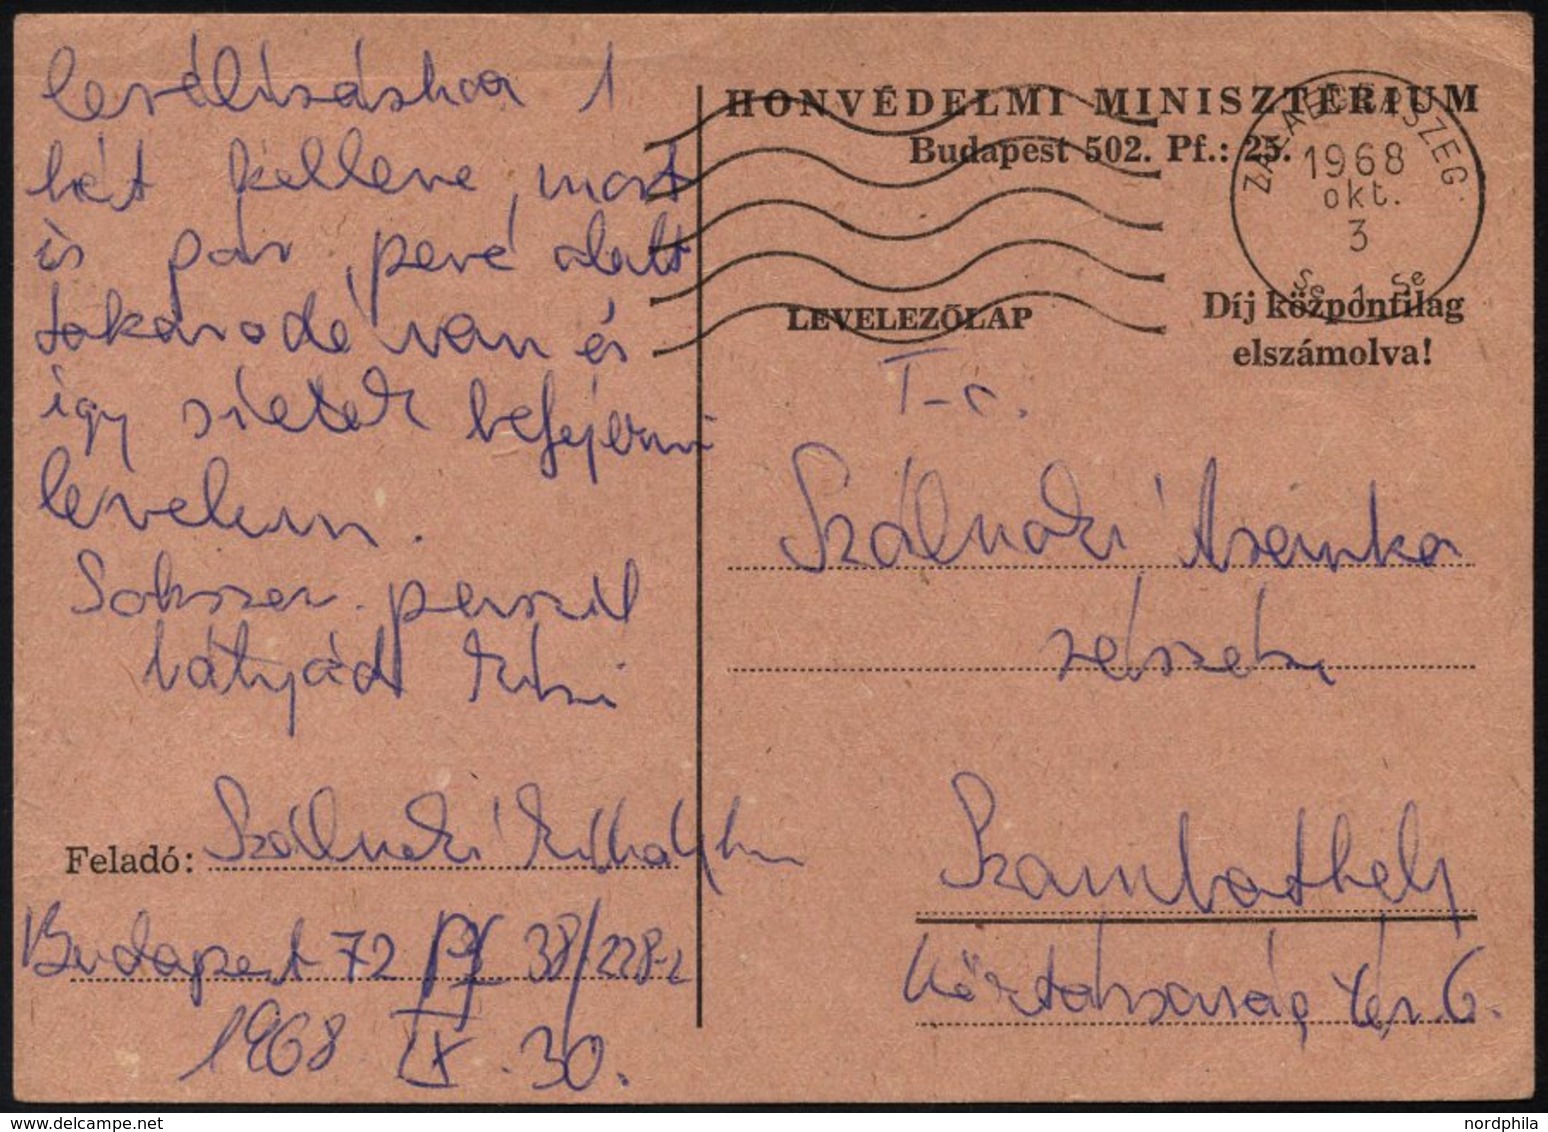 levélíráshoz 1
hét kellene, most
is pár perc alatt
takarodó van és
így sietek befejezni
levelem.
Sokszor puszil
bátyád Misi
Feladó: Szálnoki Mihály hv
Budapest 72 Pf 38/228-2
1968 IX. 30.
HONVÉDELMI MINISZTÉRIUM
Budapest 502. Pf.: 25.
ZALAEGERSZEG
1968
okt.
3
LEVELEZŐLAP
Díj központilag
elszámolva!
T-c.
Szálnoki
részére
Szombathely
Köztársaság tér 6.
nordphila